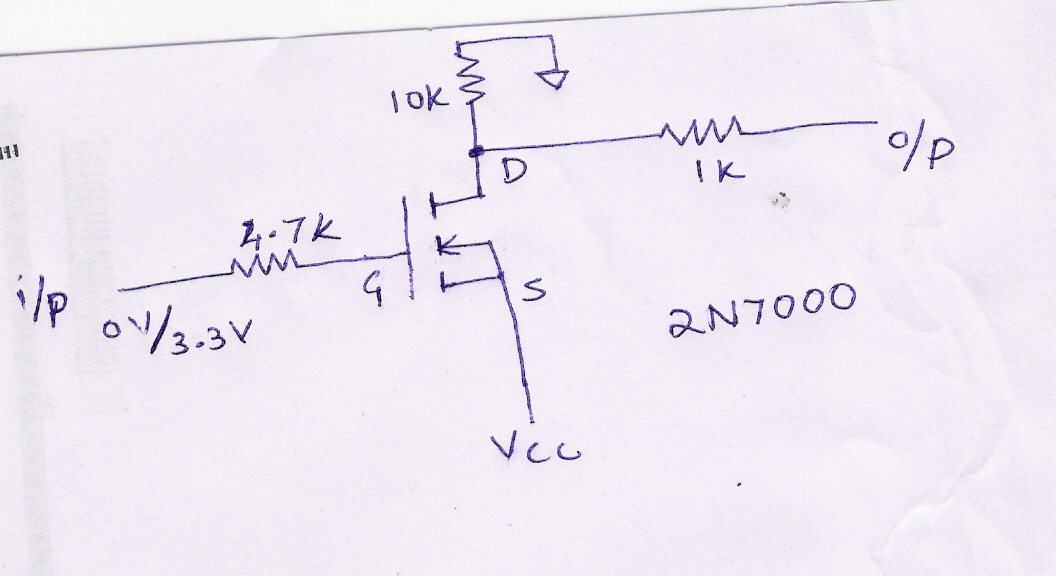 10K
D
1K
o/p
4.7K
G
i/p
0V/3.3V
S
2N7000
Vcc